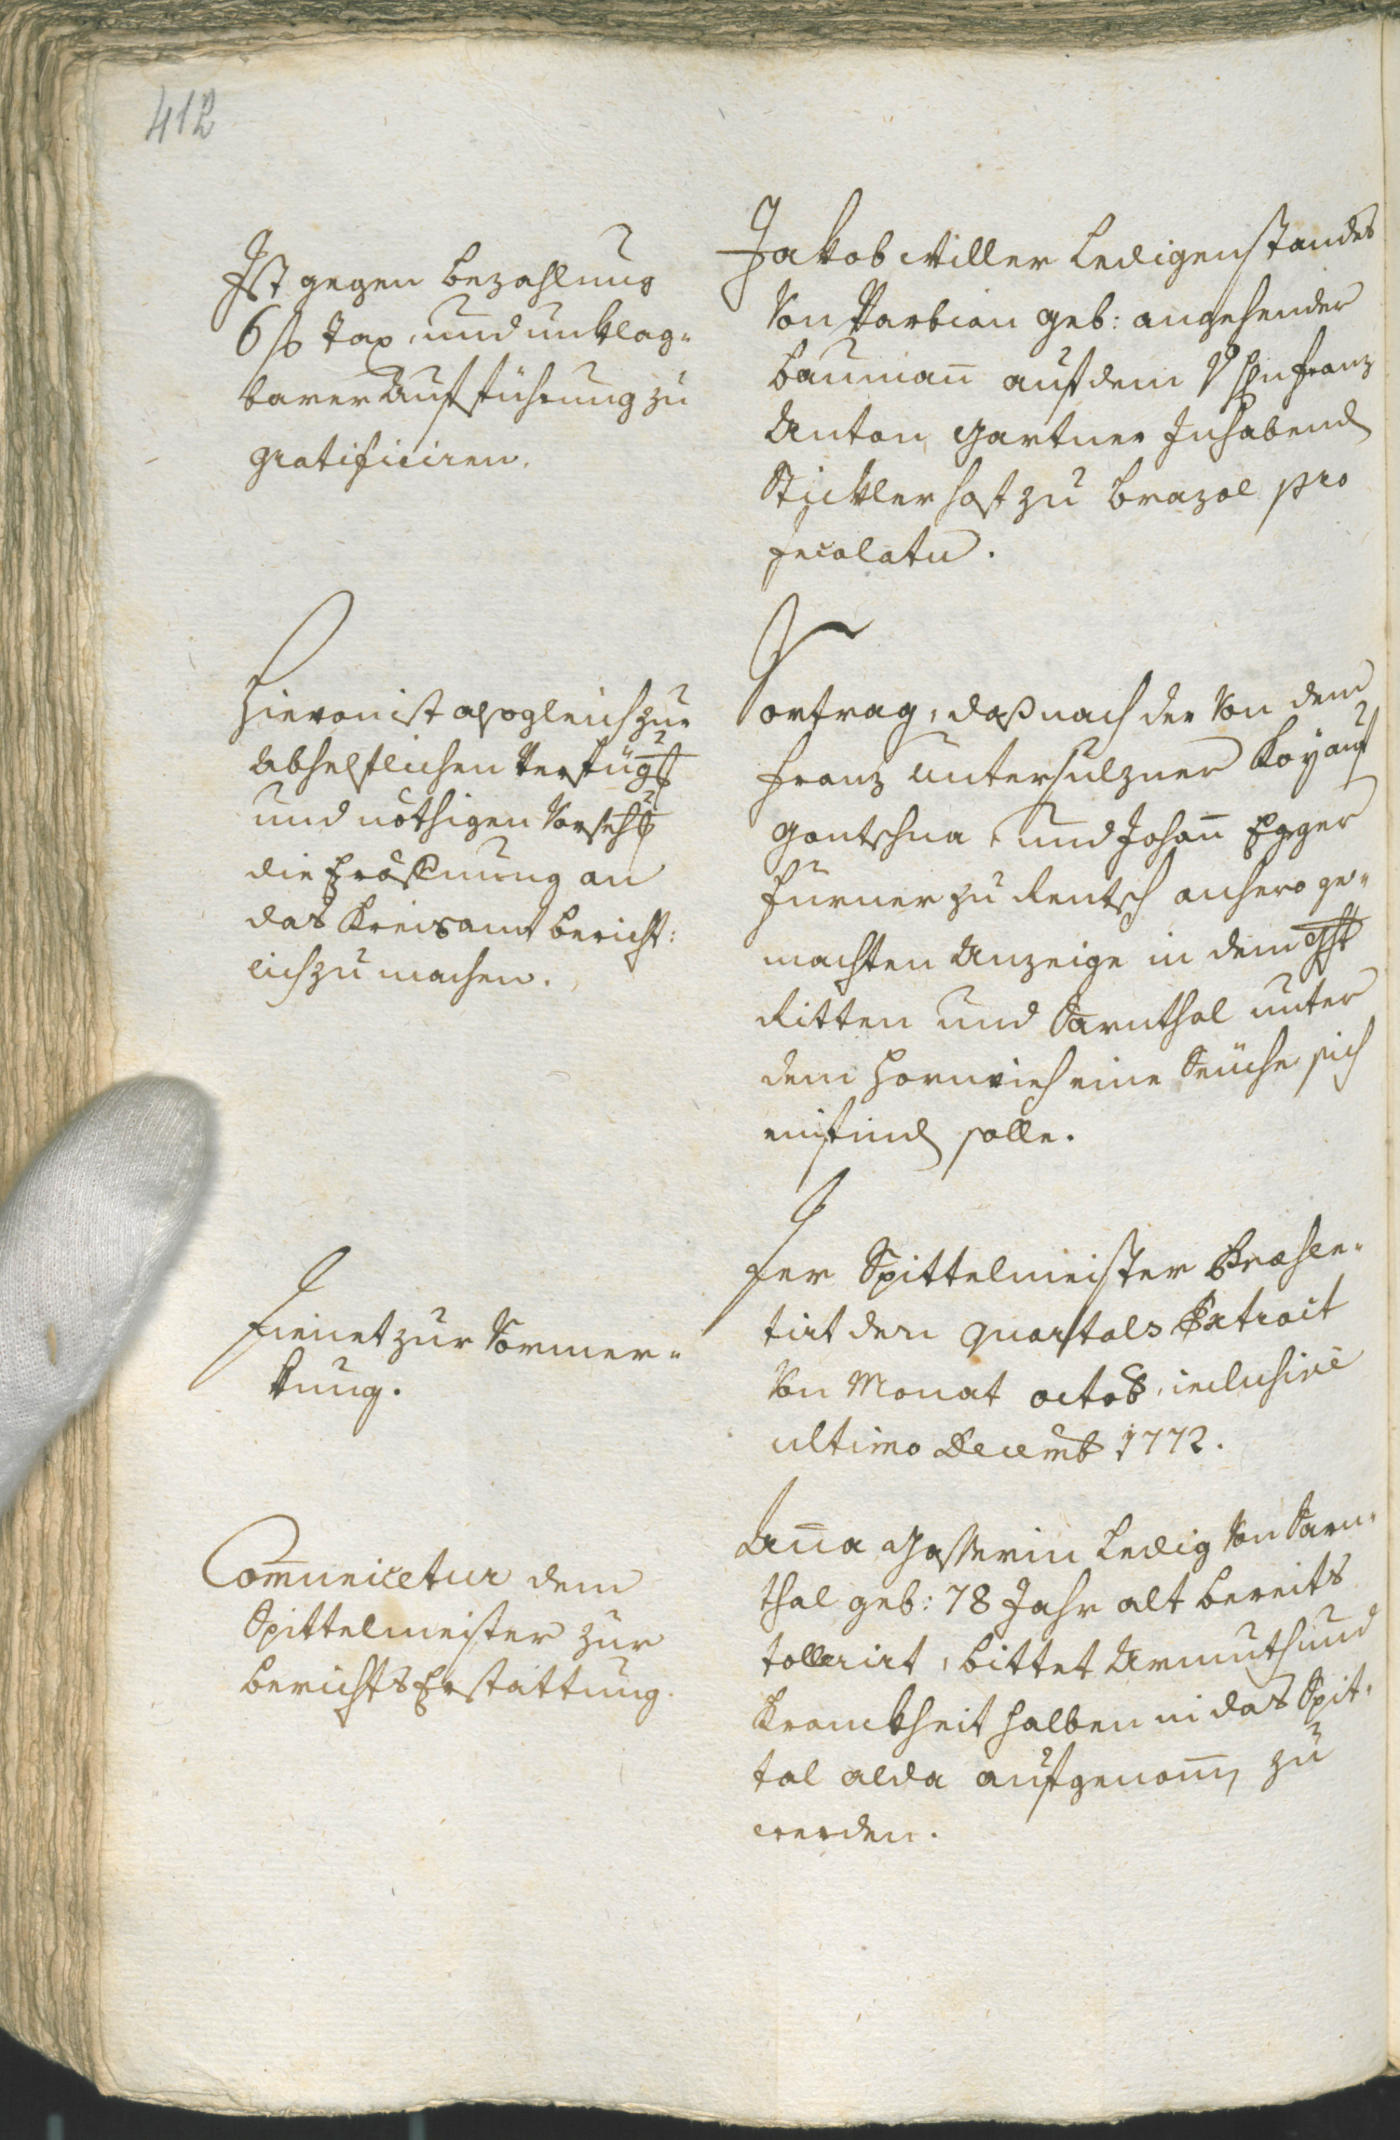 412
Ist gegen Bezahlung
6 fl Tax, und unklag-
barer Aufführung zu
gratificiren.
Jakob Miller Ledigenstandes
Von Barbian geb: angehender
Baumañ auf dem Franz
Anton Gartner Inhabend
Stickler hof zu Brazol pro
Incolatu.
Hievon ist alsogleich zur
Abhelflichen Verfügg
und nöthigen Vorsehg
die Eröffnung an
das Kreisamt bericht:
lich zu machen.
Vortrag, daß nach der Von dem
Franz Untersulzner Koy auf
Gontschna, und Johañ Egger
Furner zu Rentsch anhero ge-
machten Anzeige in dem Ght
Ritten und Sarnthal unter
dem Hornvieh eine Seüche sich
einfind solle.
Dienet zur Vormer-
kung.
Der Spittelmeister Præsen-
tirt den Quartals Extrait
Von Monat octob, inclusive
ultimo Decemb 1772.
Com̄unicetur dem
Spittelmeister zur
Berichts Erstattung.
Aña Gasserin Ledig Von Sarn-
thal geb: 78 Jahr alt bereits
tollerirt, bittet Armuth und
Kranckheit halben in das Spit-
tal alda aufgenom̄ zu
werden.